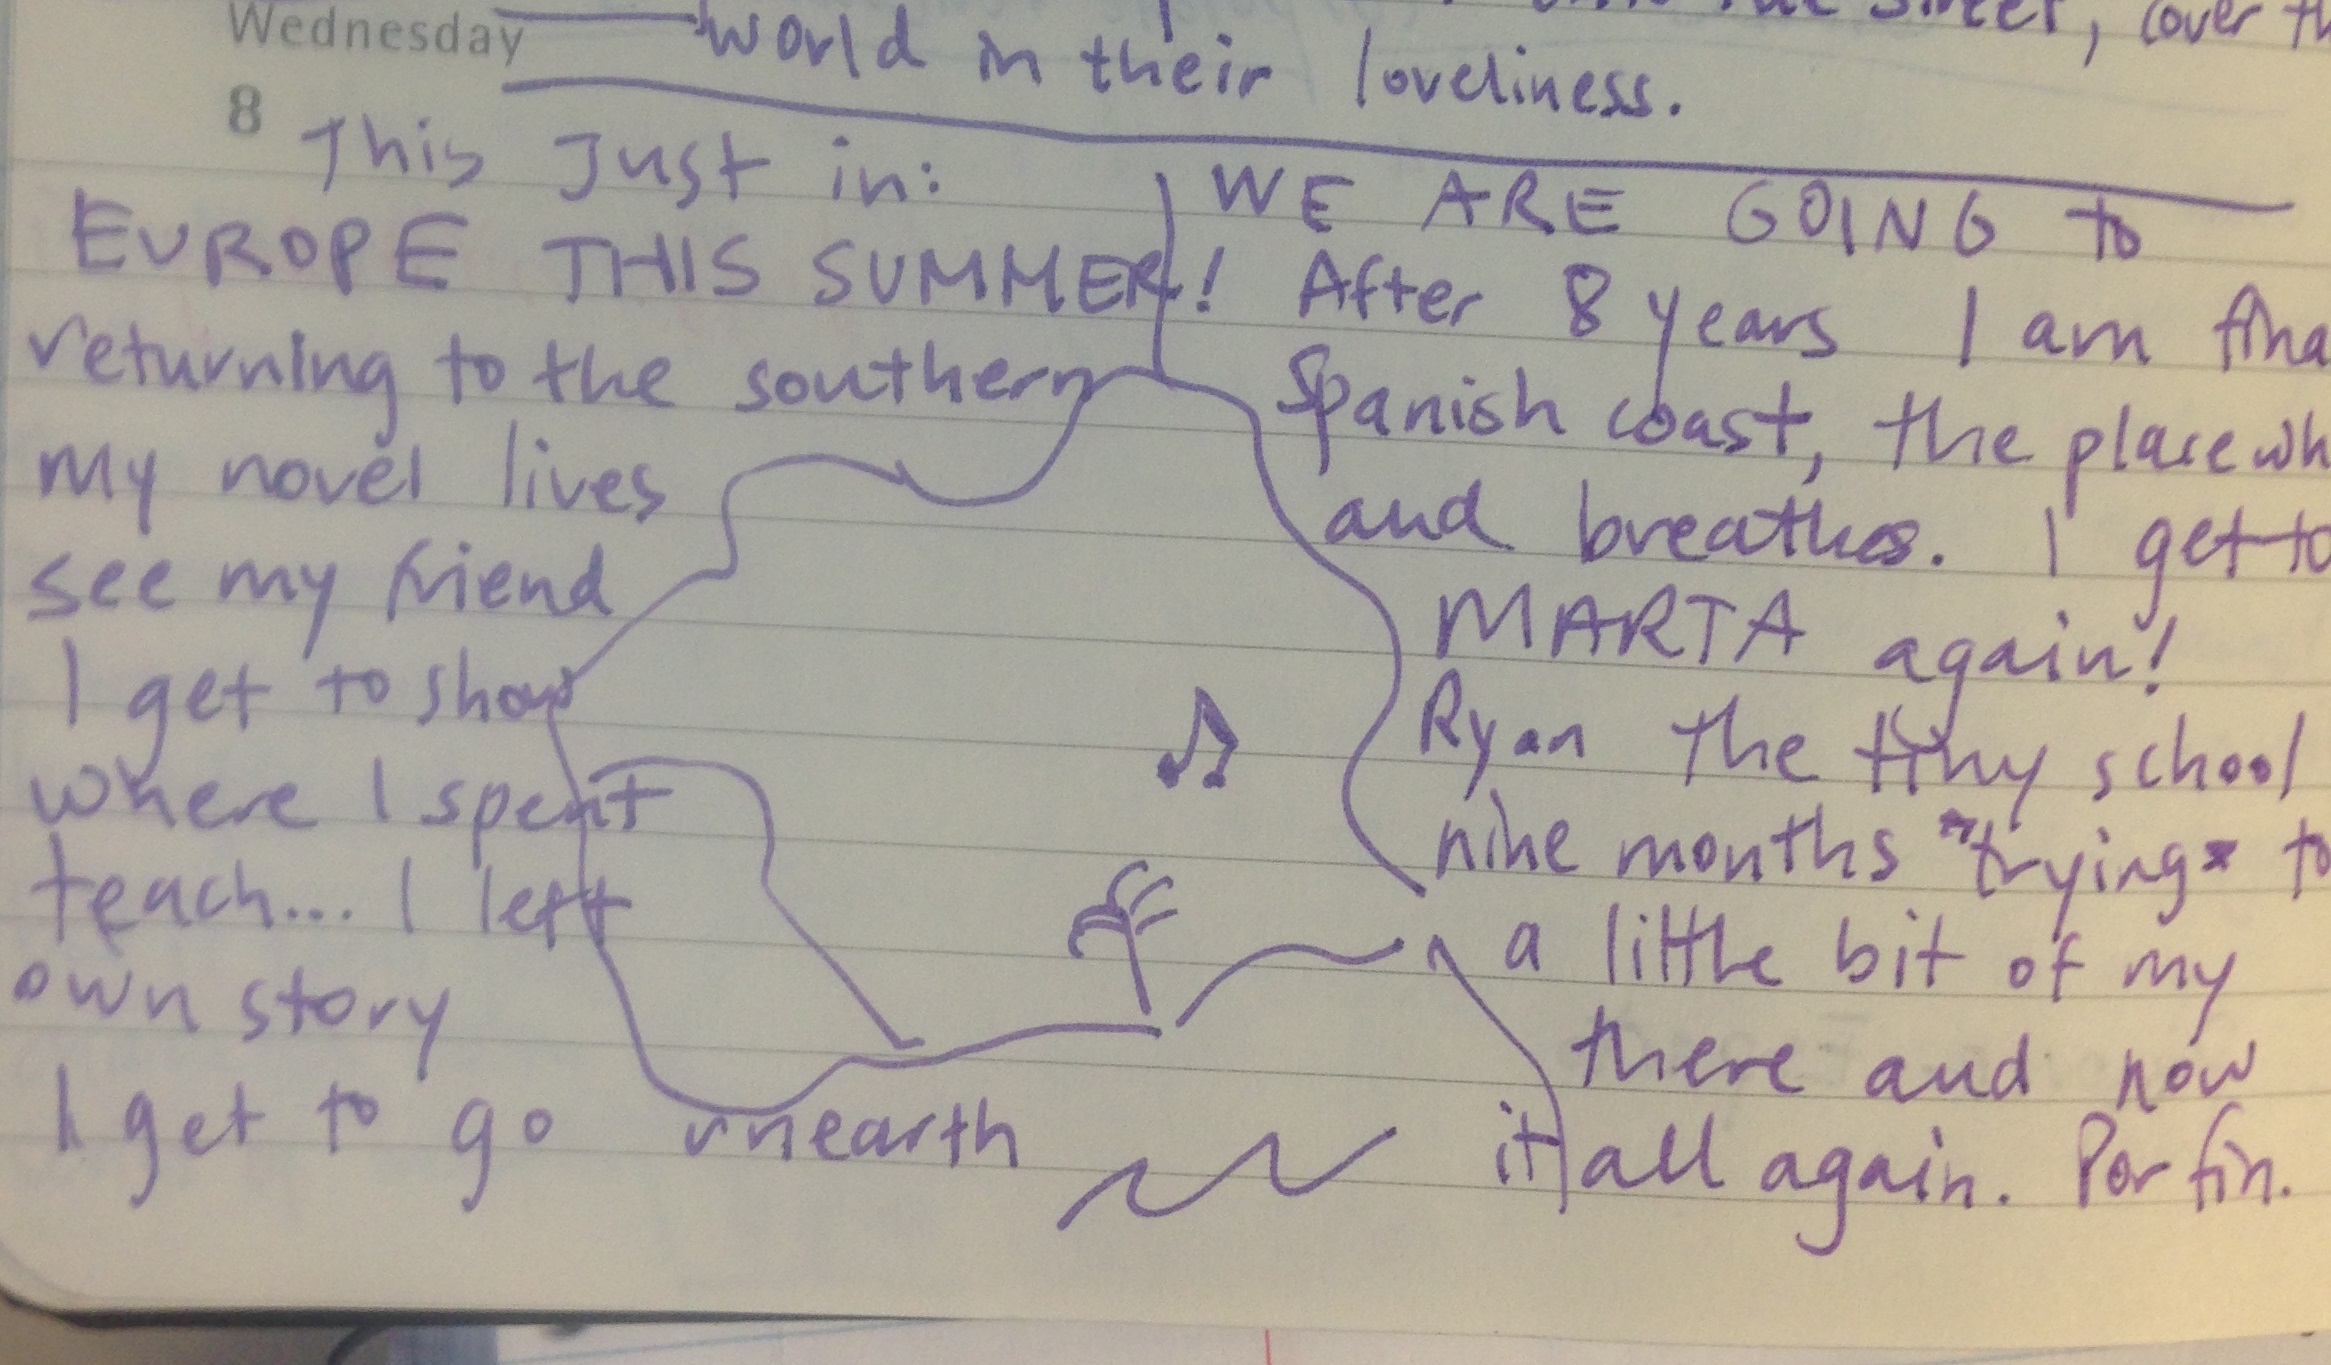 Wednesday
8
street, cover th
world in their loveliness.
This Just in: WE ARE GOING to
EUROPE THIS SUMMER! After 8 years I am fina
returning to the southern Spanish coast, the place wh
my novel lives and breathes. I get to
see my friend MARTA again!
I get to show Ryan the tiny school
where I spent nine months *trying* to
teach... I left a little bit of my
own story there and now
I get to go unearth it all again. Por fin.